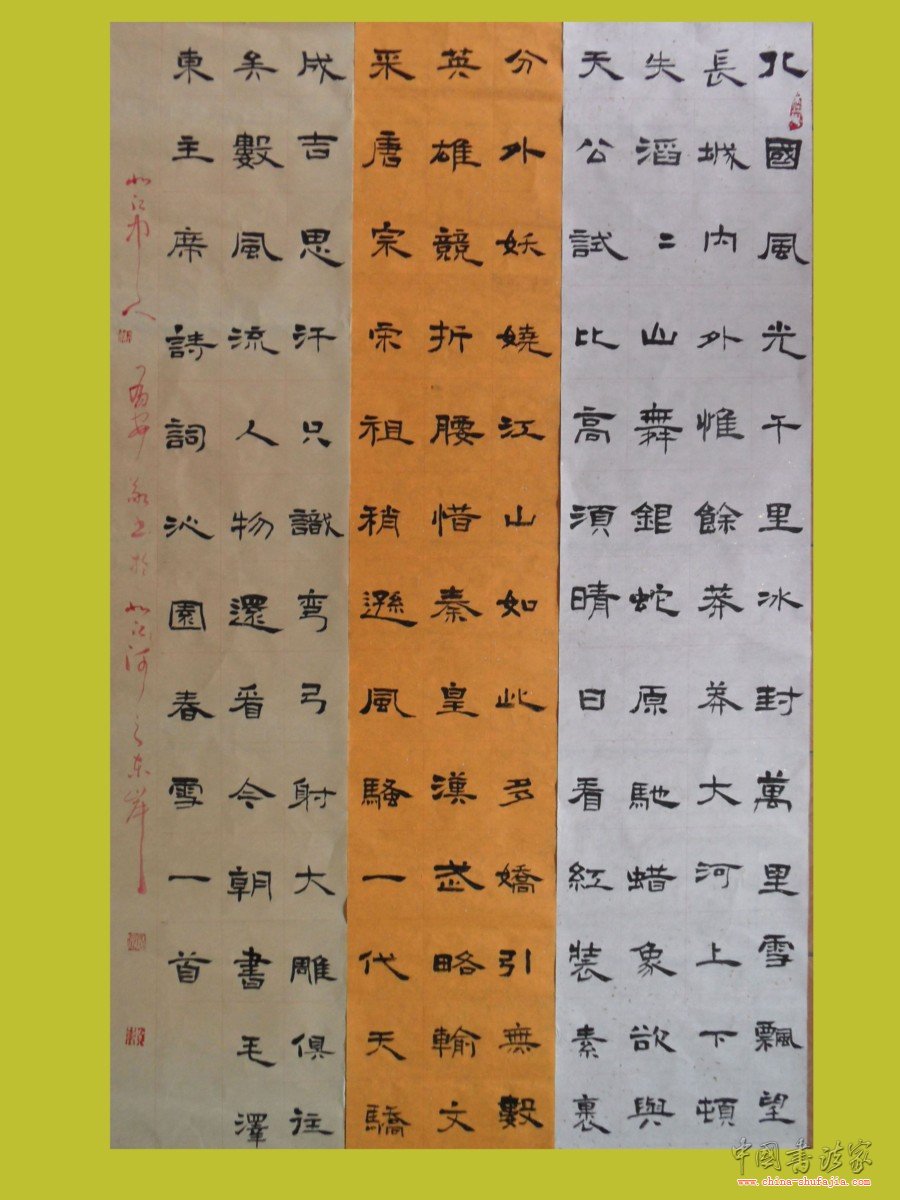 北國風光千里冰封萬里雪飄望
長城内外惟餘莽莽大河上下頓
失滔二山舞銀蛇原馳蜡象欲與
天公試比高須晴日看紅裝素裹
分外妖嬈江山如此多嬌引無數
英雄競折腰惜秦皇漢武略輸文
采唐宗宋祖稍遜風騷一代天驕
成吉思汗只識弯弓射大雕俱往
矣數風流人物還看今朝書毛澤
東主席詩詞沁園春雪一首
中国书法家
www.china-shufajia.com